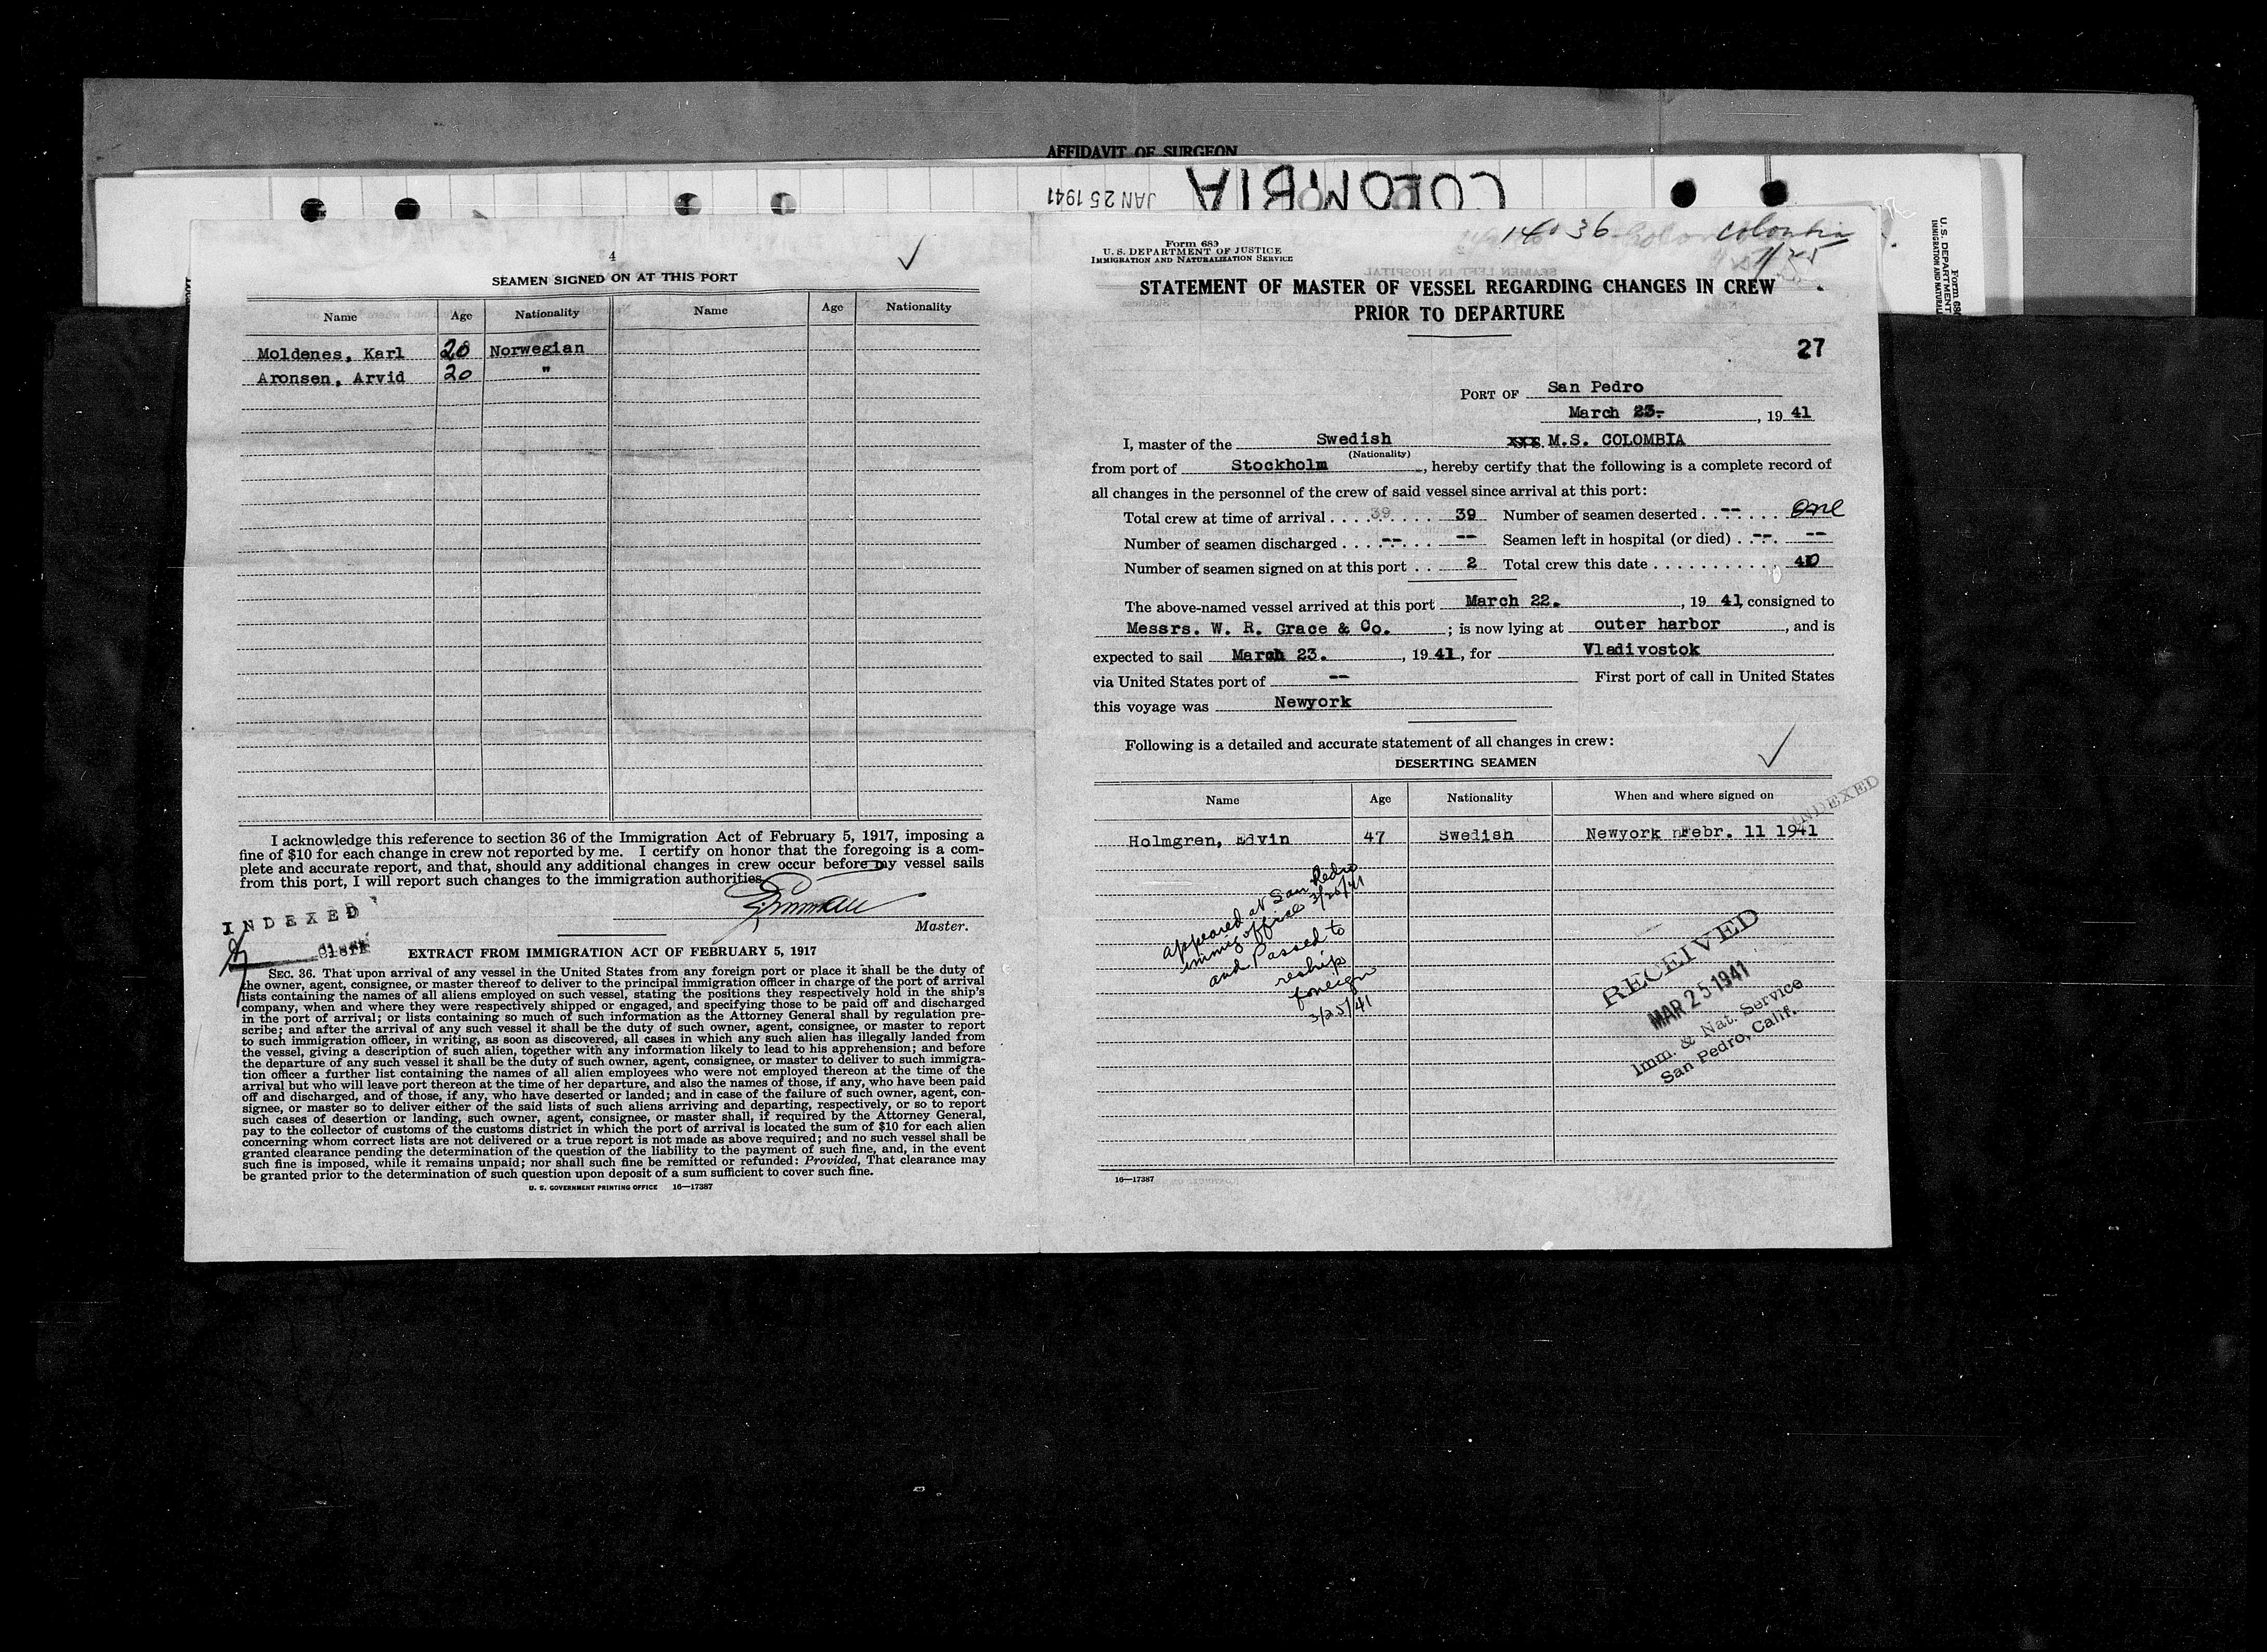 AFFIDAVIT OF SURGEON
COLOMBIA
JAN 25 1941
4
SEAMEN SIGNED ON AT THIS PORT
Name Age Nationality Name Age Nationality
Moldenes, Karl 20 Norwegian
Aronsen, Arvid 20 "
I acknowledge this reference to section 36 of the Immigration Act of February 5, 1917, imposing a
fine of $10 for each change in crew not reported by me. I certify on honor that the foregoing is a com-
plete and accurate report, and that, should any additional changes in crew occur before my vessel sails
from this port, I will report such changes to the immigration authorities.
Master.
INDEXED
Clerk
EXTRACT FROM IMMIGRATION ACT OF FEBRUARY 5, 1917
SEC. 36. That upon arrival of any vessel in the United States from any foreign port or place it shall be the duty of
the owner, agent, consignee, or master thereof to deliver to the principal immigration officer in charge of the port of arrival
lists containing the names of all aliens employed on such vessel, stating the positions they respectively hold in the ship's
company, when and where they were respectively shipped or engaged, and specifying those to be paid off and discharged
in the port of arrival; or lists containing so much of such information as the Attorney General shall by regulation pre-
scribe; and after the arrival of any such vessel it shall be the duty of such owner, agent, consignee, or master to report
to such immigration officer, in writing, as soon as discovered, all cases in which any such alien has illegally landed from
the vessel, giving a description of such alien, together with any information likely to lead to his apprehension; and before
the departure of any such vessel it shall be the duty of such owner, agent, consignee, or master to deliver to such immigra-
tion officer a further list containing the names of all alien employees who were not employed thereon at the time of the
arrival but who will leave port thereon at the time of her departure, and also the names of those, if any, who have been paid
off and discharged, and of those, if any, who have deserted or landed; and in case of the failure of such owner, agent, con-
signee, or master so to deliver either of the said lists of such aliens arriving and departing, respectively, or so to report
such cases of desertion or landing, such owner, agent, consignee, or master shall, if required by the Attorney General,
pay to the collector of customs of the customs district in which the port of arrival is located the sum of $10 for each alien
concerning whom correct lists are not delivered or a true report is not made as above required; and no such vessel shall be
granted clearance pending the determination of the question of the liability to the payment of such fine, and, in the event
such fine is imposed, while it remains unpaid; nor shall such fine be remitted or refunded: Provided, That clearance may
be granted prior to the determination of such question upon deposit of a sum sufficient to cover such fine.
U. S. GOVERNMENT PRINTING OFFICE 16—17387
Form 689
U. S. DEPARTMENT OF JUSTICE
IMMIGRATION AND NATURALIZATION SERVICE
36 Colombia
STATEMENT OF MASTER OF VESSEL REGARDING CHANGES IN CREW
PRIOR TO DEPARTURE
27
PORT OF San Pedro
March 23- , 19 41
I, master of the Swedish xxx M.S. COLOMBIA
(Nationality)
from port of Stockholm , hereby certify that the following is a complete record of
all changes in the personnel of the crew of said vessel since arrival at this port:
Total crew at time of arrival . . . . 39 . . . . . 39 Number of seamen deserted . . -- . . . . One
Number of seamen discharged . . . . -- . . . -- Seamen left in hospital (or died) . . --. . --
Number of seamen signed on at this port . . 2 Total crew this date . . . . . . . . . . . . 40
The above-named vessel arrived at this port March 22. , 19 41, consigned to
Messrs. W. R. Grace & Co. ; is now lying at outer harbor , and is
expected to sail March 23. , 19 41, for Vladivostok
via United States port of -- First port of call in United States
this voyage was Newyork
Following is a detailed and accurate statement of all changes in crew:
DESERTING SEAMEN
Name Age Nationality When and where signed on
INDEXED
Holmgren, Edvin 47 Swedish Newyork Febr. 11 1941
appeared at San Pedro
immig office 3/26/41
and Passed to
reship
foreign
3/25/41
RECEIVED
MAR 25 1941
Imm. & Nat. Service
San Pedro, Calif.
16—17387
U. S. DEPARTMENT